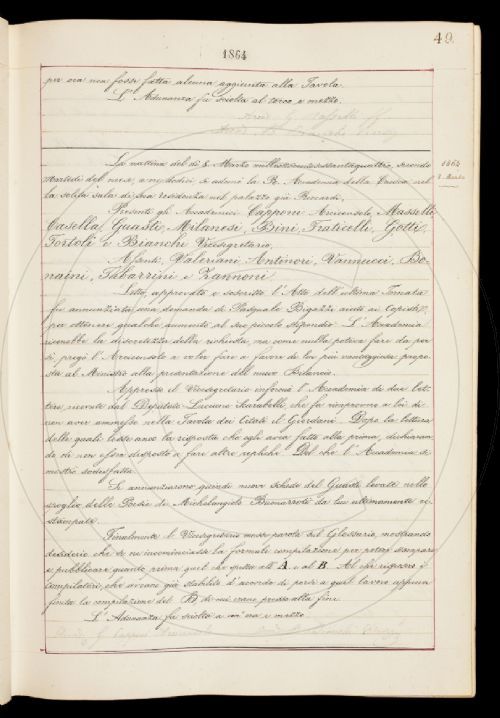 49.
1864
per ora non fosse fatta alcuna aggiunta alla Tavola.
L'Adunanza fu sciolta al tocco e mezzo.
La mattina del dì 8 Marzo milleottocentosessantaquattro, secondo
1864
8. Marzo
Martedì del mese, a mezzodì si adunò la R. Accademia della Crusca nel
la solita sala di sua residenza nel palazzo già Riccardi,
Presenti gli Accademici Capponi Arciconsolo, Masselli,
Casella, Guasti, Milanesi, Bini, Fraticelli, Gotti,
Tortoli e Bianchi Vicesegretario,
Assenti, Valeriani Antinori, Vannucci, Bo-
naini, Tabarrini e Zannoni
Letto, approvato e soscritto l'Atto dell'ultima Tornata
fu annunziata una domanda di Pasquale Bigazzi aiuto ai Copisti,
per ottenere qualche aumento al suo piccolo stipendio. L'Accademia
riconobbe la discretezza della richiesta, ma come nulla poteva fare da per
sè pregò l'Arciconsolo a voler fare a favore di lui più vantaggiose propo-
ste al Ministro alla presentazione del nuovo Bilancio.
Appresso il Vicesegretario informò l'Accademia di due let-
tere, ricevute dal Deputato Luciano Scarabelli, che fa rimprovero a lui di
non aver ammesso nella Tavola dei Citati il Giordani. Dopo la lettura
delle quali lesse anco la risposta che egli avea fatta alla prima, dichiaran-
do di non esser disposto a fare altre repliche. Del che l'Accademia si
mostrò sodisfatta.
Si annunziarono quindi nuove schede del Guasti levate nello
spoglio delle Poesie di Michelangelo Buonarroti da lui ultimamente ri-
stampate.
Finalmente il Vicesegretario mosse parola sul Glossario, mostrando
desiderio che se ne incominciasse la formale compilazione per potere stampare
e pubblicare quanto prima quel che spetta all' A. e al B. Al che risposero i
Compilatori, che avevano già stabilito d'accordo di porsi a quel lavoro appena
finita la compilazione del B, di cui erano presso alla fine.
L'Adunanza fu sciolta a un'ora e mezzo.